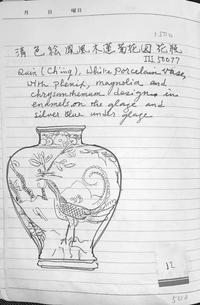 月 日 曜日
清 色絵鳳凰木蓮菊花図花瓶
III 50077
Quin (Ch'ing), White Porcelain Vase,
with phenix, magnolia and
chrysanthemum design in
enamels on the glage and
silver blue under glage
12